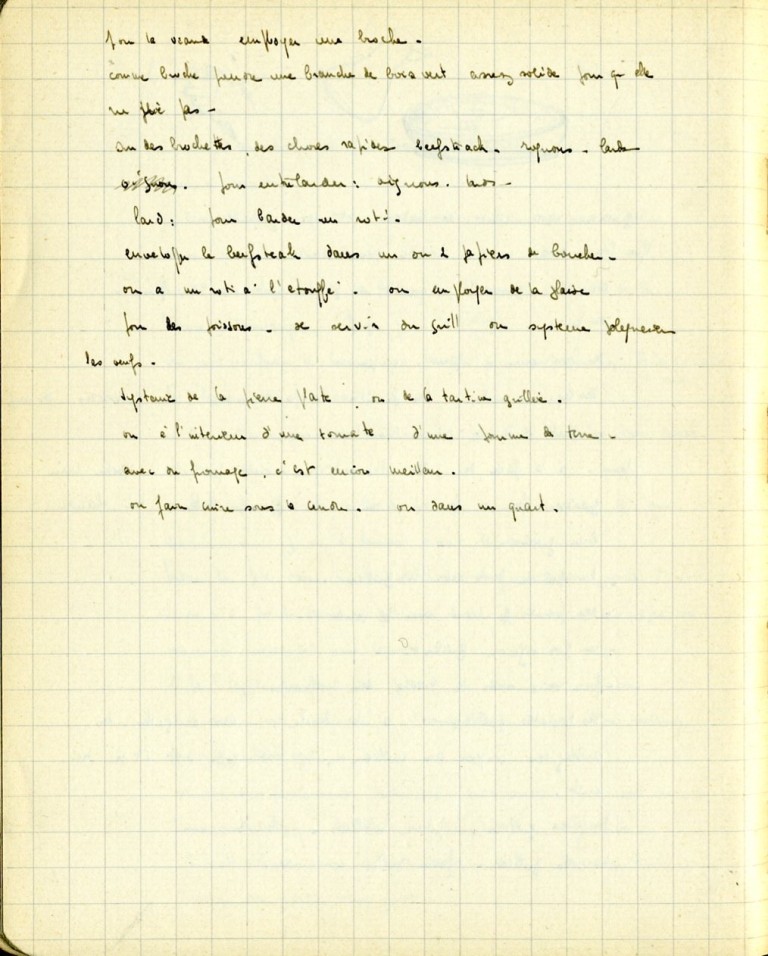 pour la viande employer une broche.
comme broche prendre une branche de bois vert assez solide pour qu'elle
ne plie pas -
ou des brochettes, des choses rapides beefsteack. rognons - lard
oignons. pour entrelarder: oignons. lard -
lard: pour barder un roti.
envelopper le beefsteak dans un ou 2 papiers de boucher -
on a un roti à l'etouffé. ou employer de la glaise
pour les poissons - se servir du grill ou systeme
les oeufs.
systeme de la pierre plate, ou de la tartine grillée.
ou à l'interieur d'une tomate d'une pomme de terre -
avec du fromage, c'est encore meilleur.
ou faire cuire sous la cendre. ou dans un quart.